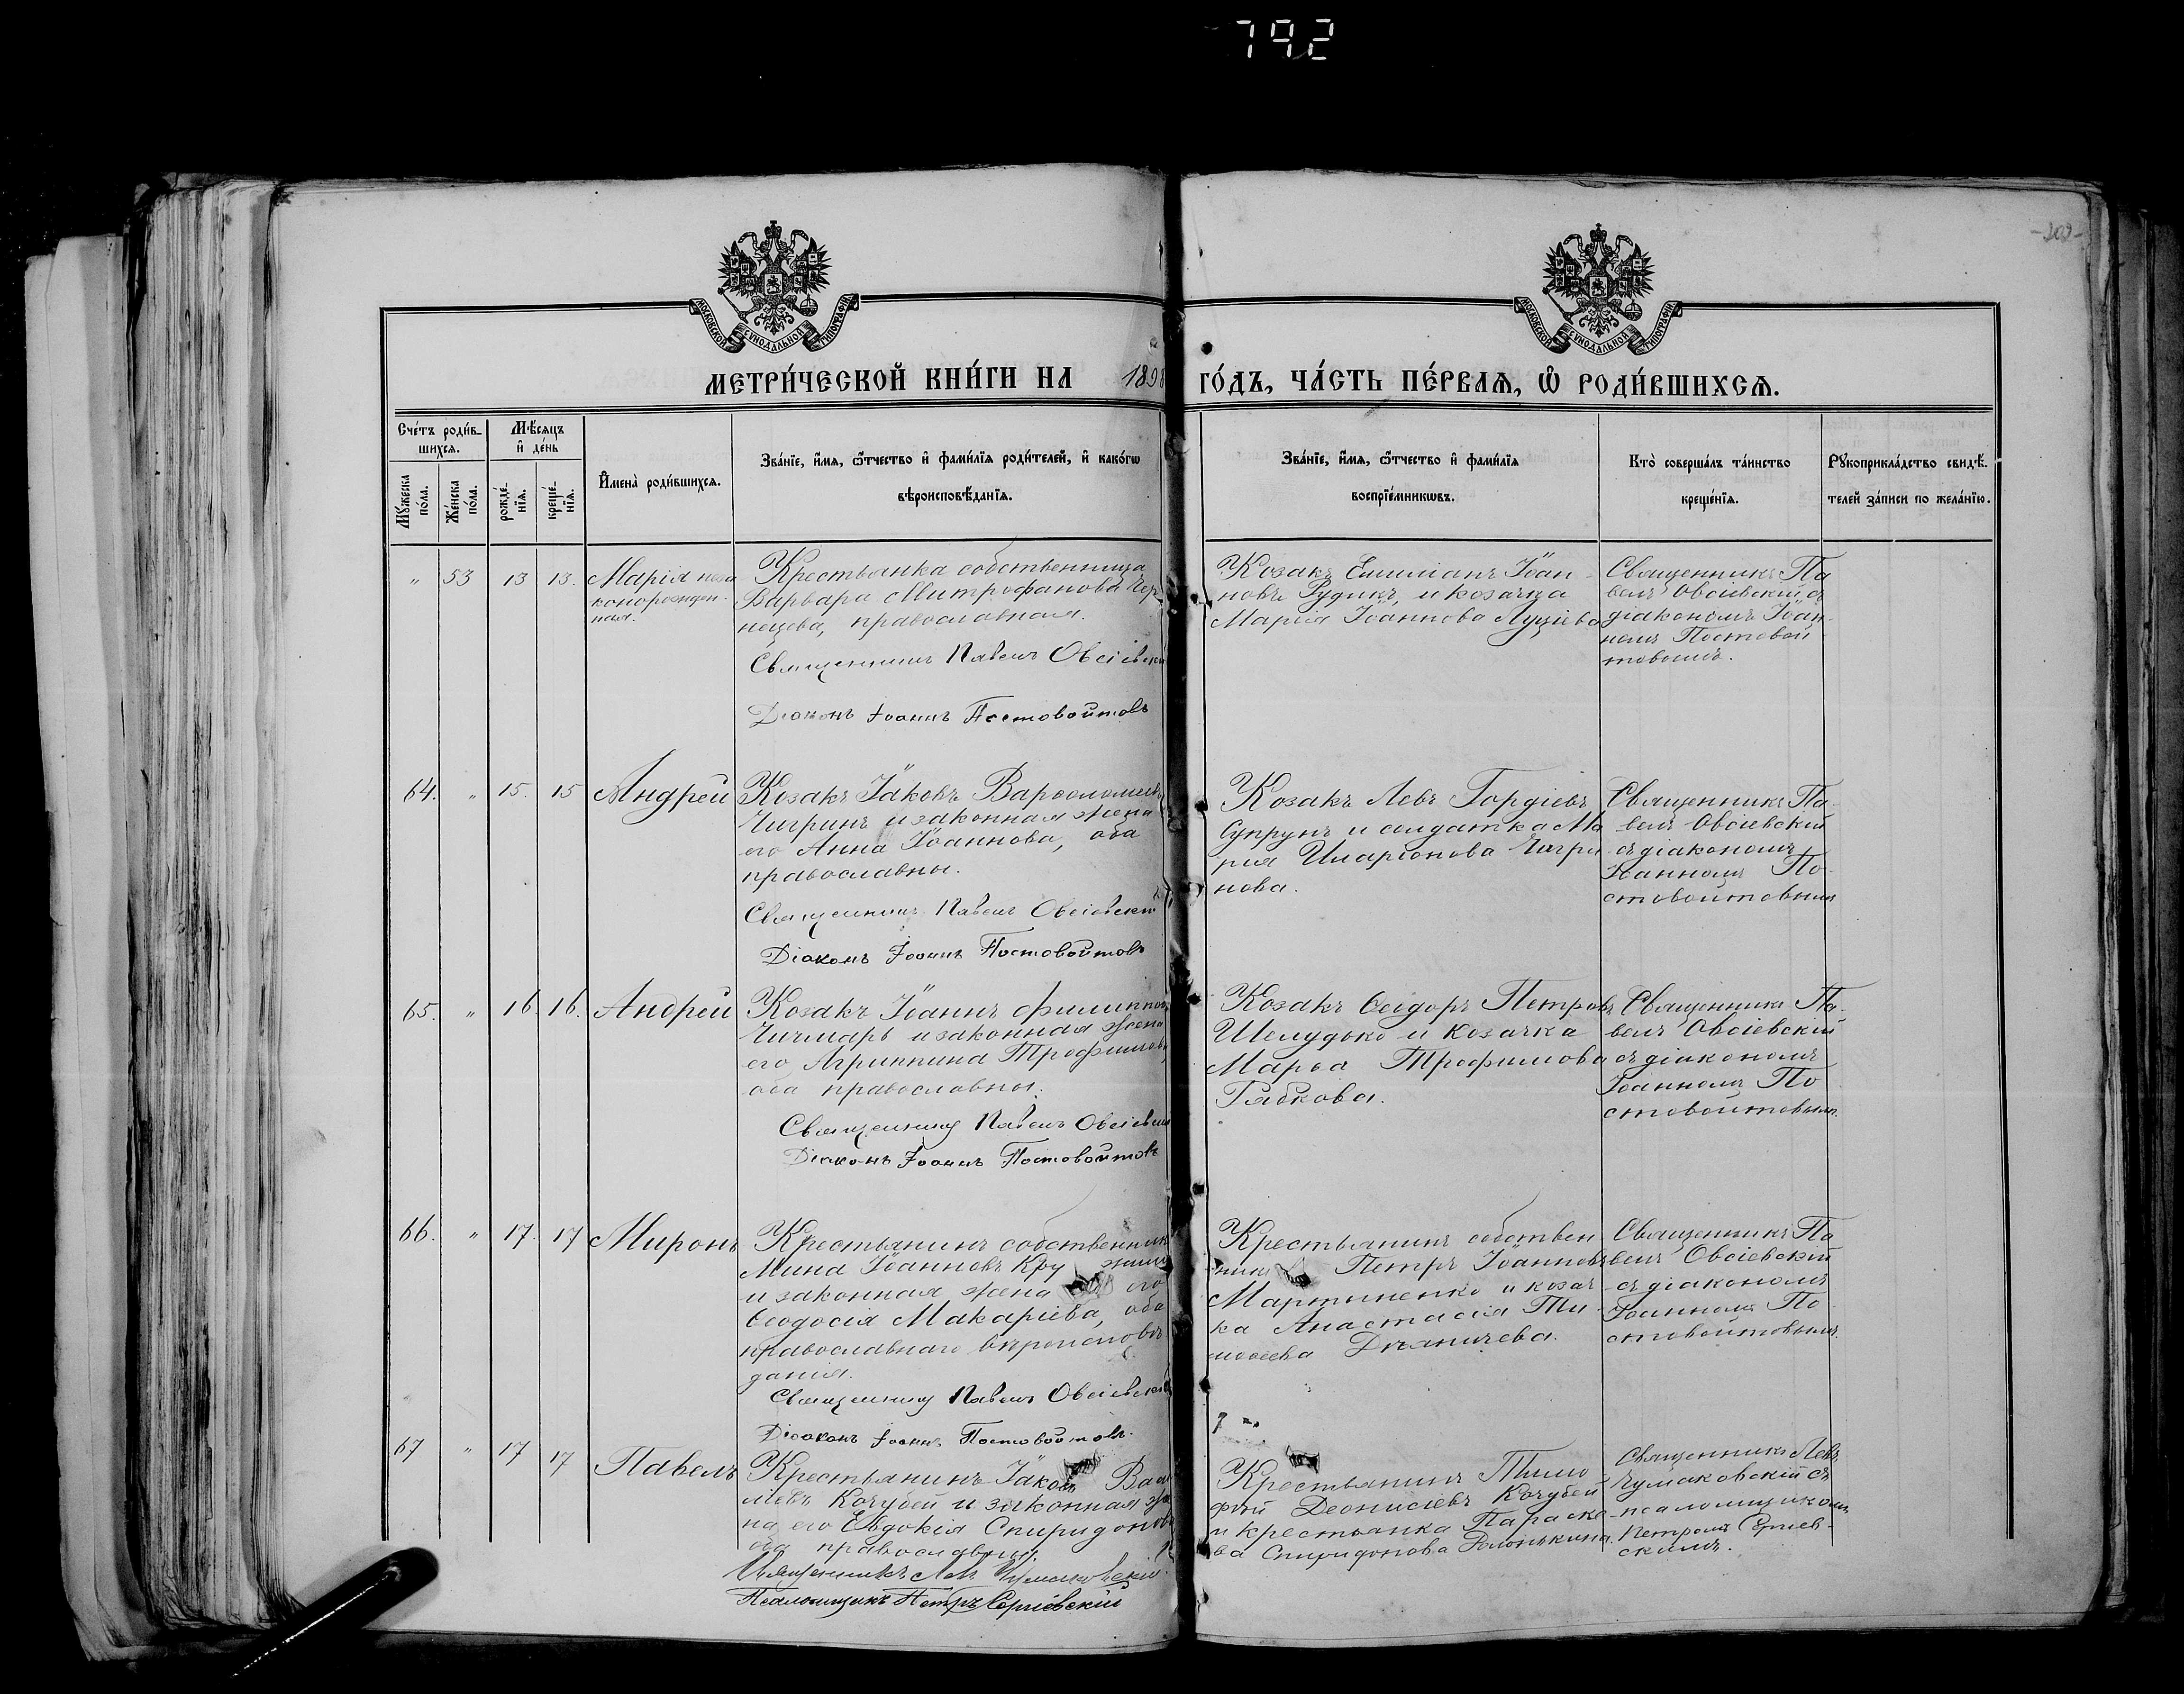 792
-202-
МОСКОВСКОЙ СУНОДАЛЬНОЙ ТИПОГРАФІИ
МОСКОВСКОЙ СУНОДАЛЬНОЙ ТИПОГРАФІИ
МЕТРИ́ЧЕСКОЙ КНИ́ГИ НА 1898 ГО́ДЪ, ЧА́СТЬ ПЕ́РВАѦ, Ѿ РОДИ́ВШИХСѦ.
Сче́тъ роди́в-
шихсѧ.
Мѣ́сѧцъ
и҆ де́нь
Мꙋ́жеска
по́ла.
Же́нска
по́ла.
рожде́-
нїѧ.
креще́-
нїѧ.
И҆мена̀ роди́вшихсѧ.
Зва́нїе, и҆́мѧ, ѻ҆́тчество и҆ фами́лїѧ роди́телей, и҆ како́гѡ
вѣроисповѣ́данїѧ.
Зва́нїе, и҆́мѧ, ѻ҆́тчество и҆ фами́лїѧ
воспрїе́мникѡвъ.
Кто̀ соверша́лъ та́инство
креще́нїѧ.
Рꙋкоприкла́дство свидѣ́-
телей за́писи по жела́нїю.
" 53 13 13. Марія неза
конорожден-
ная.
Крестьянка собственница
Варвара Митрофанова Чер-
нецова, православная.
Священникъ Павелъ Овсіевскій
Діаконъ Іоаннъ Постовойтовъ
Козакъ Емиліанъ Іоан-
новъ Рудикъ, и козачка
Марія Іоаннова Луціева
Священникъ Па
велъ Овсіевскій съ
діакономъ Іоан-
номъ Постовой
товымъ.
64. " 15. 15 Андрей
Козакъ Іаковъ Варѳоломеевъ
Чигринъ и законная жена
его Анна Іоаннова, оба
православны.
Священникъ Павелъ Овсіевскій
Діаконъ Іоаннъ Постовойтовъ
Козакъ Левъ Гордіевъ
Супрунъ и солдатка Ма
рія Иларіонова Чигри
нова.
Священникъ Па-
велъ Овсіевскій
съ діакономъ
Іоанномъ По-
стовойтовымъ
65. " 16. 16. Андрей
Козакъ Іоаннъ Филипповъ
Чичмарь и законная жена
его Агриппина Трофимова,
оба православны.
Священникъ Павелъ Овсіевскій
Діаконъ Іоаннъ Постовойтовъ
Козакъ Ѳеодоръ Петровъ
Шелудько и козачка
Марѳа Трофимова
Рябкова.
Священникъ Па-
велъ Овсіевскій
съ діакономъ
Іоанномъ По
стовойтовымъ.
66. " 17. 17 Миронъ
Крестьянинъ собственникъ
Мина Іоанновъ
и законная жена его
Ѳеодосія Макаріева, оба
православнаго вѣроисповѣ-
данія.
Священникъ Павелъ Овсіевскій
Діаконъ Іоаннъ Постовойтовъ.
Крестьянинъ собствен
никъ Петръ Іоанновъ
Мартыненко и козач
ка Анастасія Ти-
моѳеева
Священникъ Па
велъ Овсіевскій
съ діакономъ
Іоанномъ По
стовойтовымъ.
67 " 17 17 Павелъ
Крестьянинъ Іаковъ
Кочубей и законная же
на его Евдокія Спиридонова
оба православны.
Священникъ Левъ Чумаковскій.
Псаломщикъ Петръ Сергіевскій
Крестьянинъ Тимо
фей Деонисіевъ Кочубей
и крестьянка Параске-
ва Спиридонова
Священникъ Левъ
Чумаковскій съ
псаломщикомъ
Петромъ Сергіев-
скимъ.